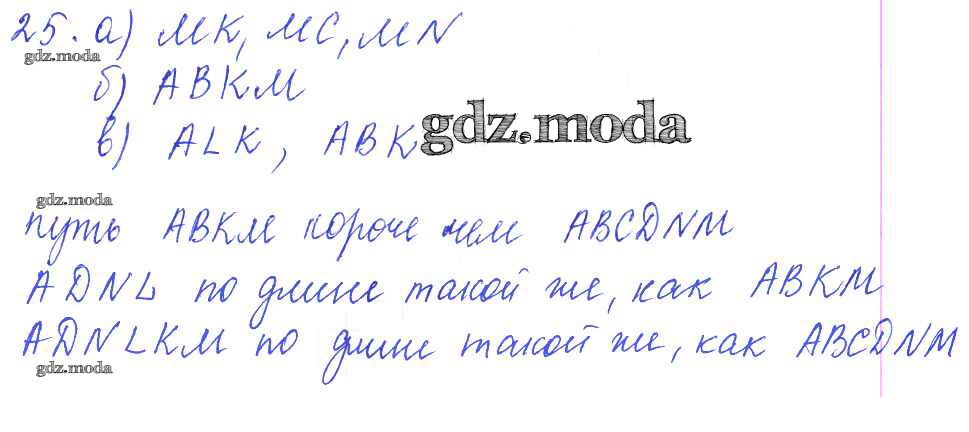 25. а) MK, MC, MN
gdz.moda
б) ABKM
в) ALK, ABK gdz.moda
gdz.moda
путь ABKM короче чем ABCDNM
ADNL по длине такой же, как ABKM
ADNLKM по длине такой же, как ABCDNM
gdz.moda